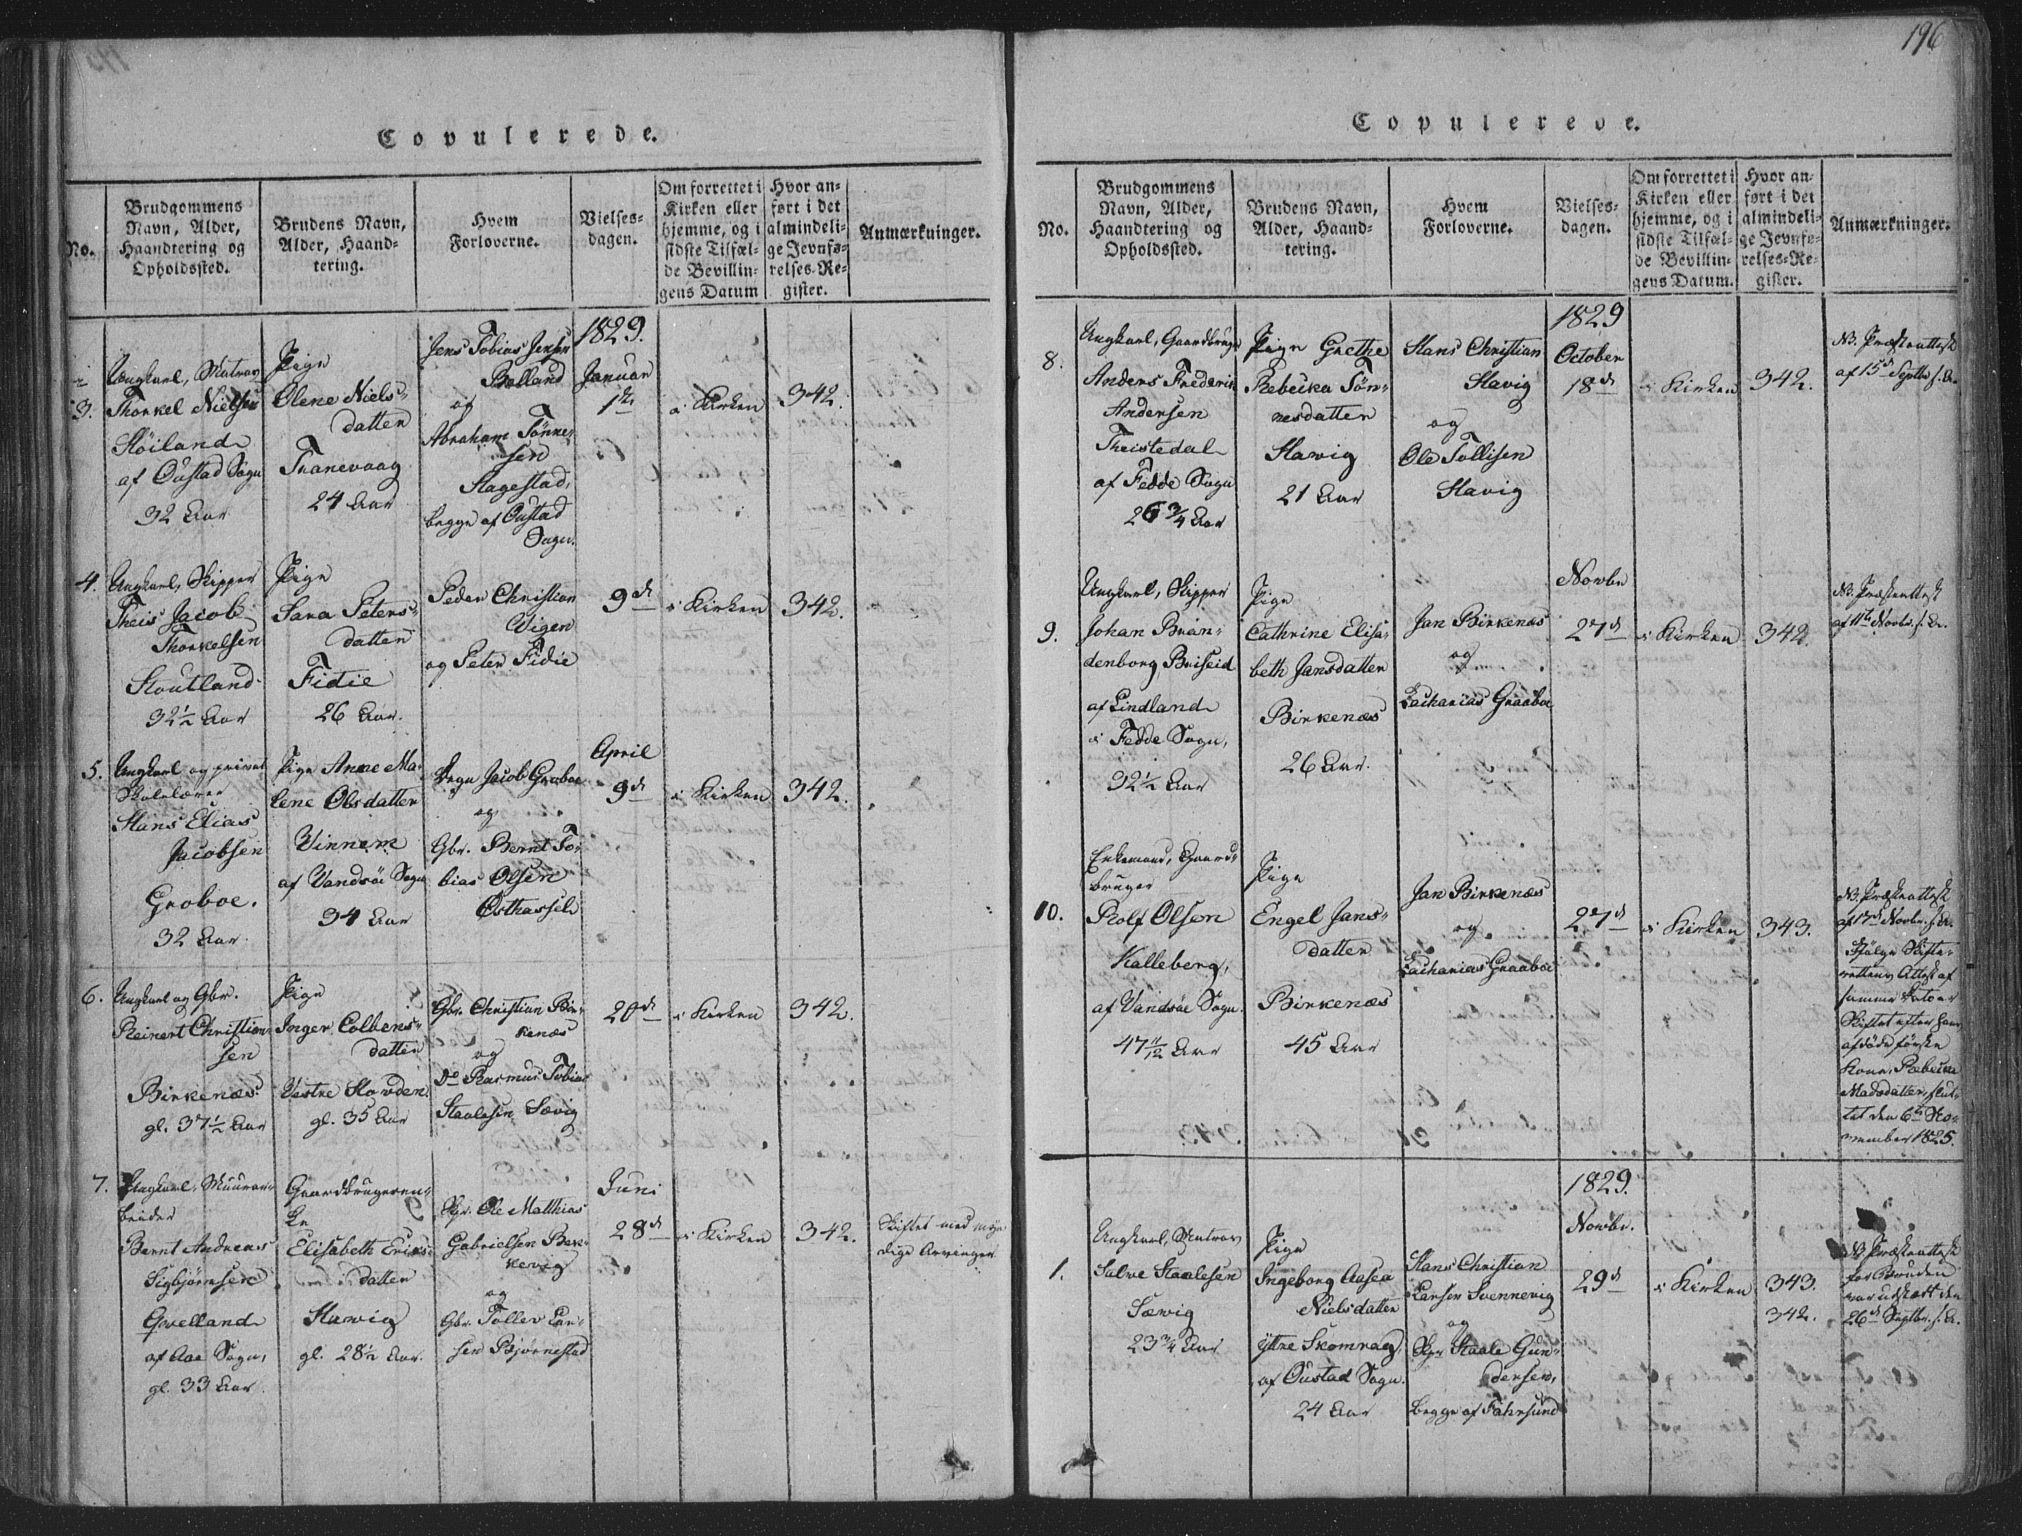 Copulerede.
No.
Brudgommens
Navn, Alder,
Haandtering og
Opholdssted.
Brudens Navn,
Alder, Haand-
tering.
Hvem
Forloverne.
Vielses-
dagen.
Om forrettet i
Kirken eller
hjemme, og i
sidste Tilfæl-
de Bevillin-
gens Datum
Hvor an-
ført i det
almindeli-
ge Jevnfø-
relses-Re-
gister.
Anmærkninger.
3.
Ungkarl, Matros
Thorkel Nielsen
Høiland
af Oustad Sogn
32 Aar
Pige
Olene Niels-
datter
Tranevaag
24 Aar
Jens Tobias Jensen
Bolland
og
Abraham Tönne-
sen
Hagestad,
begge af Oustad
Sogn.
1829.
Januar
1te
i Kirken
342.
4.
Ungkarl, Skipper
Theis Jacob
Thorkelsen
Stoutland
32½ Aar
Pige
Sara Peters-
datter
Fidie
26 Aar.
Peder Christian
Vigen
og Peter Fidie
9de
i Kirken
342.
5.
Ungkarl og privat
Skolelærer
Hans Elias
Jacobsen
Groboe.
32 Aar
Pige Anne Ma-
lene Olsdatter
Vinnem
af Vandsöe Sogn
34 Aar
Degn Jacob Groboe
og
Gbr. Bernt To-
bias Olsen
Östhassel
April
9de
i Kirken
342.
6.
Ungkarl og Gbr.
Reinert Christian-
sen
Birkenæs
gl. 37½ Aar
Pige
Inger Colbens-
datter
Vestre Hovden
gl. 35 Aar
Gbr. Christian Bir-
kenæs
og
Do Rasmus Tobias
Staalesen Sævig
20de
i Kirken
342.
7.
Ungkarl, Muurar-
beider
Bernt Andreas
Sigbjørnsen
Qvelland
af Aae Sogn,
gl. 33 Aar
Gaardbrugeren-
ke
Elisabeth Eriks-
datter
Havig
gl. 28½ Aar.
Gbr. Ole Matthias
Gabrielsen Bar-
kevig
og
Gbr. Tollev Lar-
sen Bjørnestad
Juni
28de
i Kirken
342.
Skiftet med myn
dige Arvinger
196
Copulerede.
No.
Brudgommens
Navn, Alder,
Haandtering og
Opholdssted.
Brudens Navn,
Alder, Haand-
tering.
Hvem
Forloverne.
Vielses-
dagen.
Om forrettet i
Kirken eller
hjemme, og i
sidste Tilfæl-
de Bevillin-
gens Datum.
Hvor an-
ført i det
almindeli-
ge Jevnfø-
relses-Re-
gister.
Anmærkninger.
8.
Ungkarl, Gaardbruger
Anders Frederik
Andersen
Theistedal
af Fedde Sogn
26¾ Aar
Pige Grethe
Rebecka Tön-
nesdatter
Havig
21 Aar
Hans Christian
Havig
og
Ole Tollisen
Havig
1829
October
18de
i Kirken
342.
NB. Præsteattest
af 15de Septbr. s. A.
9.
Ungkarl, Skipper
Johan Bran-
denborg Briseid
af Lindland
i Fedde Sogn,
32½ Aar
Pige
Cathrine Elisa-
beth Jansdatter
Birkenæs
26 Aar.
Jan Birkenæs
og
Zacharias Graaboe
Novbr
27de
i Kirken
342.
NB. Præsteattest
af 11te Novbr. s. A.
10.
Enkemand, Gaard-
bruger
Rolf Olsen
Kalleberg,
af Vandsöe Sogn.
47 11/12 Aar
Pige
Engel Jans-
datter
Birkenæs
45 Aar
Jan Birkenæs
og
Zacharias Graaboe
27de
i Kirken
343.
NB. Præsteattest
af 17de Novbr. s. A.
Ifølge Skifte-
rettens Attest af
samme Dato er
Skiftet efter hans
afdöde förste
Kone, Rebecka
Madsdatter, slut-
tet den 6te No-
vember 1825.
1.
Ungkarl, Matros
Salve Staalesen
Sævig
23¾ Aar
Pige
Ingeborg Aasea
Nielsdatter
ÿttre Skomrag
af Oustad Sogn.
24 Aar
Hans Christian
Larsen Svennevig
og
Staale Gun-
dersen,
begge af Fahrsund
1829.
Novbr.
29de
i Kirken
343.
342.
NB. Præsteattest
for Bruden
var udstædt den
26de Septbr. s. A.